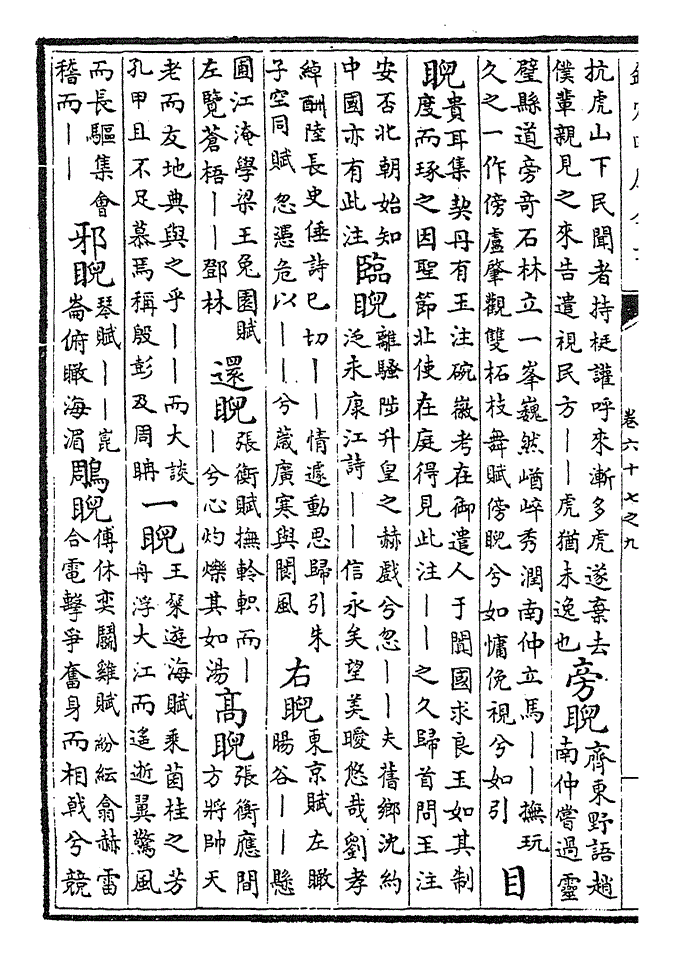 卷六十七之九
抗虎山下民聞者持梃讙呼來漸多虎遂棄去
僕輩親見之來告遣視民方——虎猶未逸也
旁睨
齊東野語趙
南仲嘗過靈
璧縣道旁奇石林立一峯巍然崷崒秀潤南仲立馬——撫玩
久之一作傍盧肇觀雙柘枝舞賦傍睨兮如慵俛視兮如引
目
睨
貴耳集契丹有玉注碗徽考在御遣人于闐國求良玉如其制
度而琢之因聖節北使在庭得見此注——之久歸首問玉注
安否北朝始知
中國亦有此注
臨睨
離騷陟升皇之赫戲兮忽——夫舊鄉沈約
泛永康江詩——信永矣望美曖悠哉劉孝
綽酬陸長史倕詩已切——情遽動思歸引朱
子空同賦忽憑危以——兮藐廣寒與閬風
右睨
東京賦左瞰
暘谷——懸
圃江淹學梁王兔園賦
左覽蒼梧——鄧林
還睨
張衡賦撫軨軹而—
—兮心灼爍其如湯
高睨
張衡應間
方將帥天
老而友地典與之乎——而大談
孔甲且不足慕焉稱殷彭及周聃
一睨
王粲遊海賦乘菌桂之芳
舟浮大江而遙逝翼驚風
而長驅集會
稽而——
邪睨
琴賦——崑
崙俯瞰海湄
鵰睨
傅休奕鬭雞賦紛紜翕赫雷
合電擊爭奮身而相戟兮競